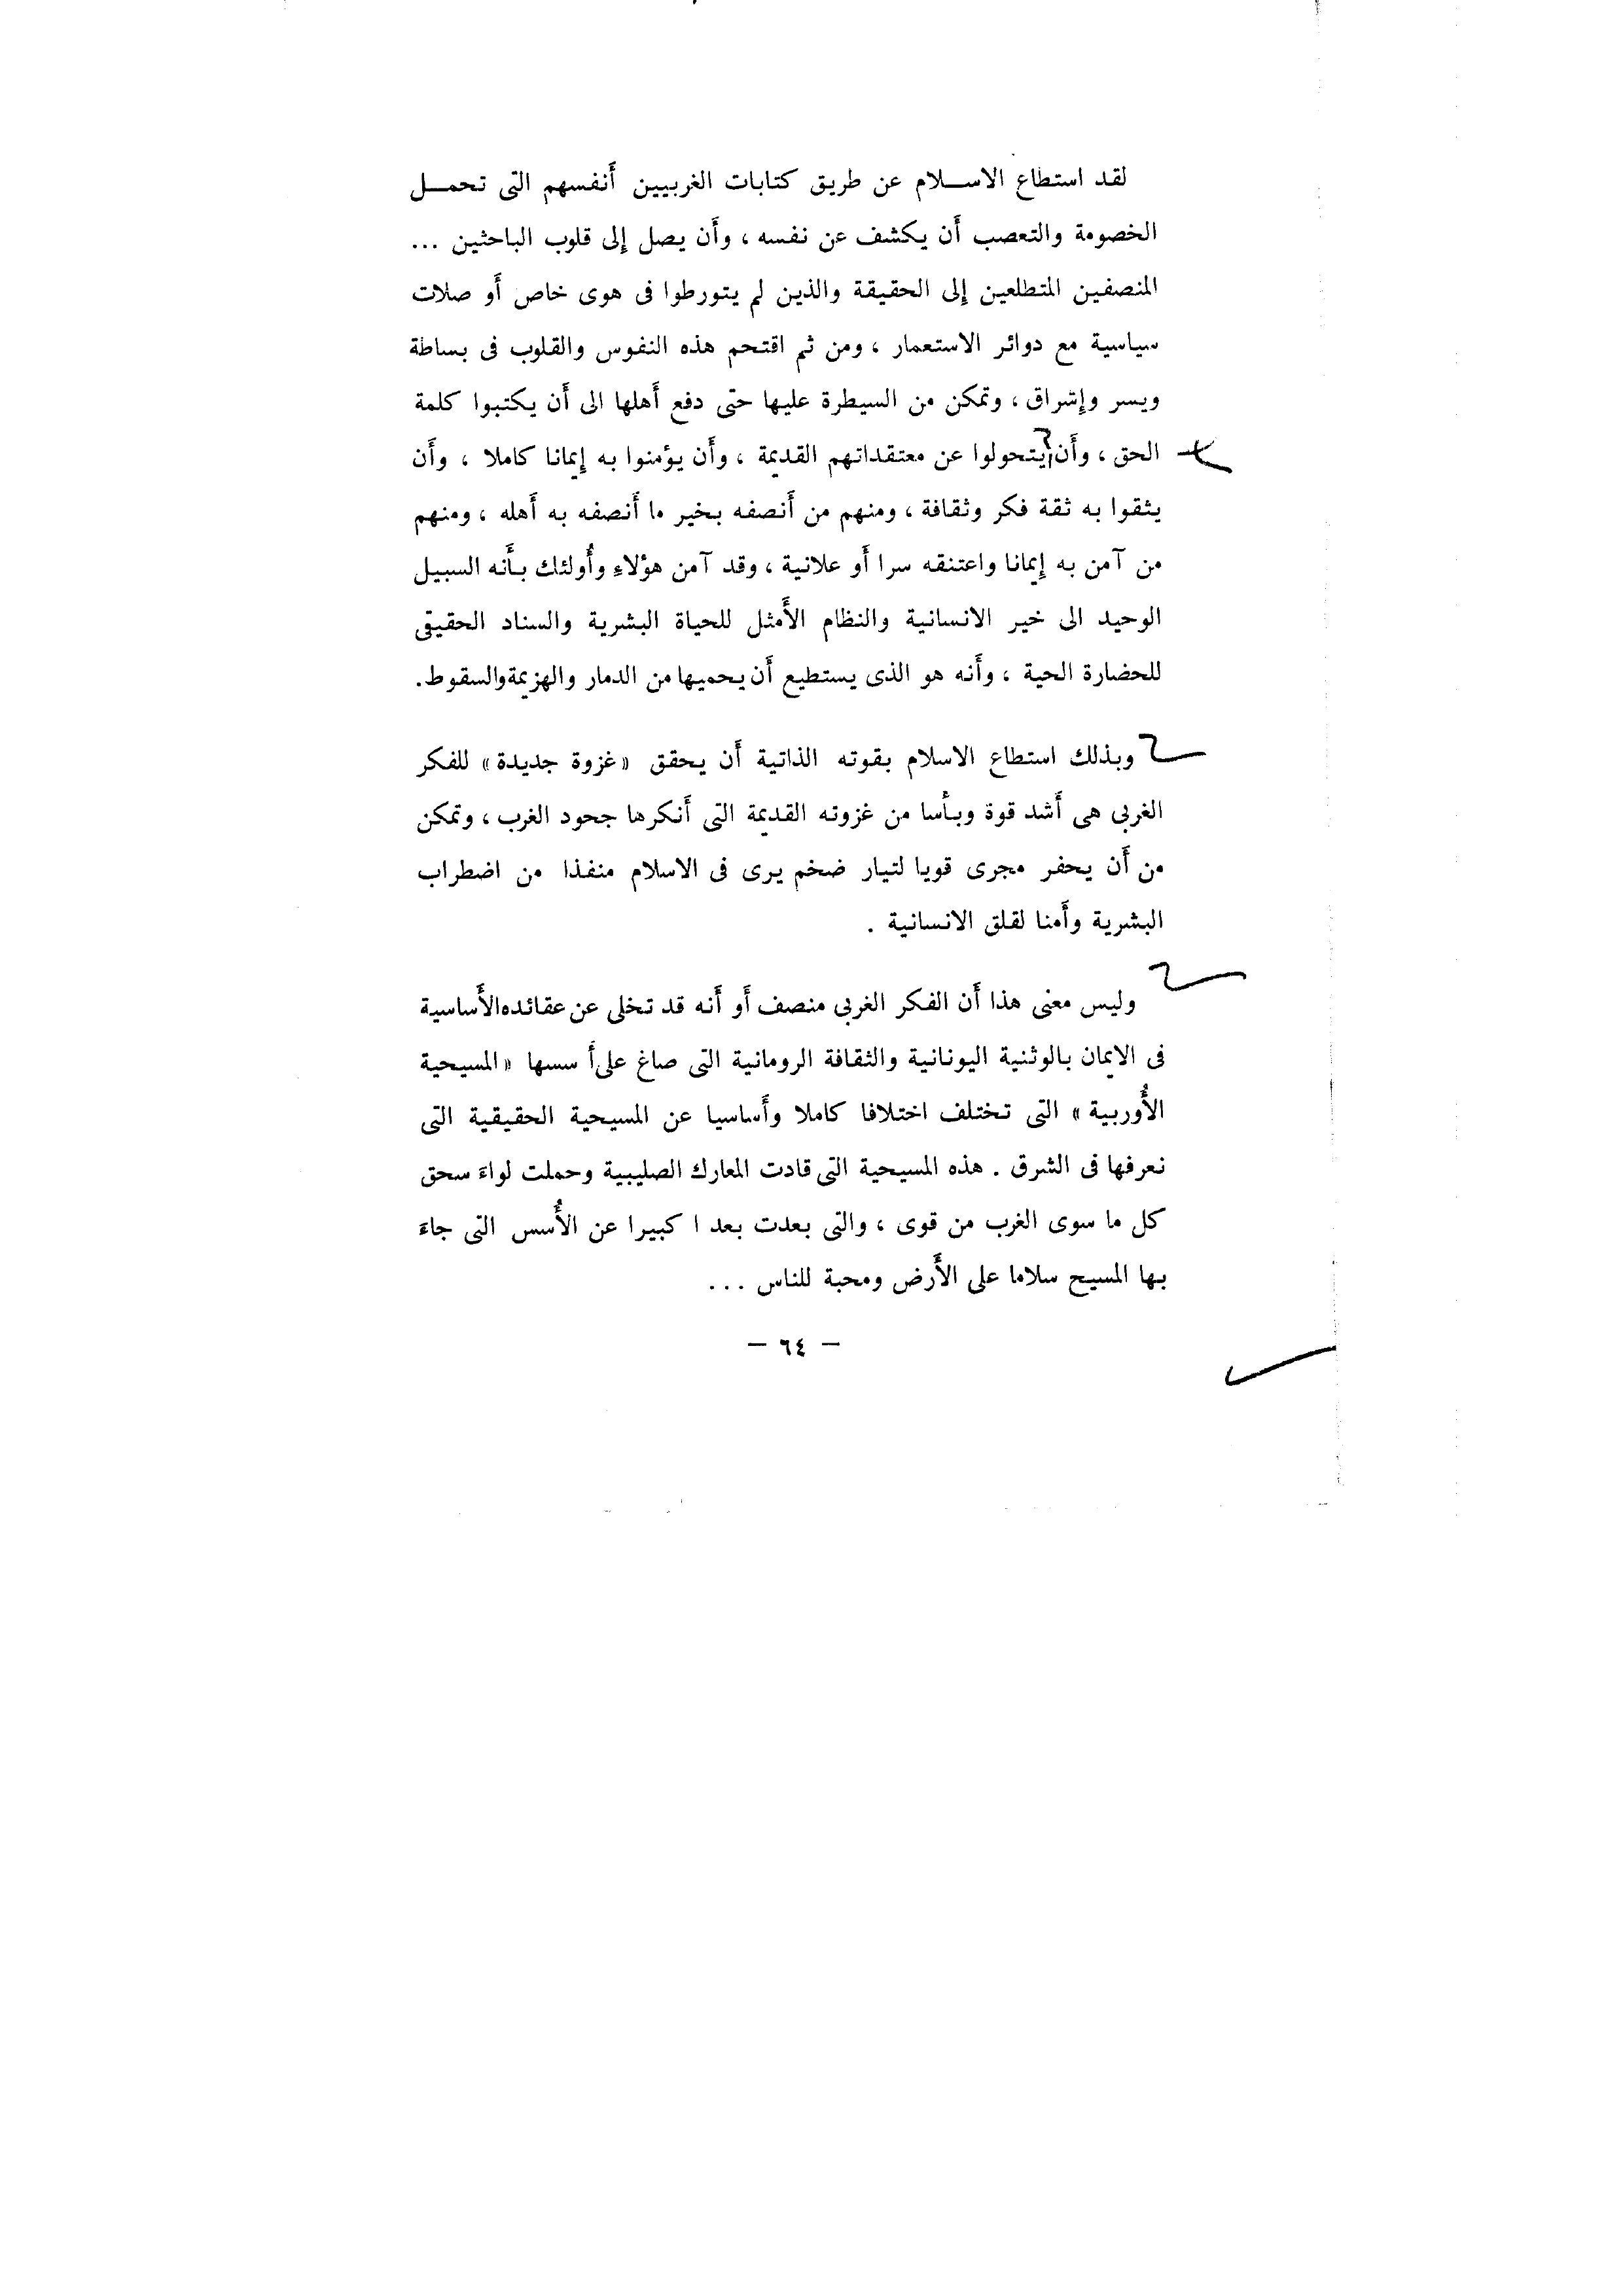 لقد استطاع الاسـلام عن طريق كتابات الغربيين أَنفسهم التى تحمـل
الخصومة والتعصب أَن يكشف عن نفسه ، وأَن يصل إلى قلوب الباحثين ...
المنصفين المتطلعين إلى الحقيقة والذين لم يتورطوا فى هوى خاص أَو صلات
سياسية مع دوائر الاستعمار ، ومن ثم اقتحم هذه النفوس والقلوب فى بساطة
ويسر وإشراق ، وتمكن من السيطرة عليها حتى دفع أَهلها الى أَن يكتبوا كلمة
الحق ، وأَن يتحولوا عن معتقداتهم القديمة ، وأَن يؤمنوا به إيمانا كاملا ، وأَن
يثقوا به ثقة فكر وثقافة ، ومنهم من أَنصفه بخير ما أَنصفه به أَهله ، ومنهم
من آمن به إيمانا واعتنقه سرا أَو علانية ، وقد آمن هؤلاءِ وأُولئك بأَنه السبيل
الوحيد الى خير الانسانية والنظام الأَمثل للحياة البشرية والسناد الحقيقى
للحضارة الحية ، وأَنه هو الذى يستطيع أَن يحميها من الدمار والهزيمة والسقوط.
وبذلك استطاع الاسلام بقوته الذاتية أَن يحقق «غزوة جديدة» للفكر
الغربى هى أَشد قوة وبأْسا من غزوته القديمة التى أَنكرها جحود الغرب ، وتمكن
من أَن يحفر مجرى قويا لتيار ضخم يرى فى الاسلام منفذا من اضطراب
البشرية وأَمنا لقلق الانسانية .
وليس معنى هذا أَن الفكر الغربى منصف أَو أَنه قد تخلى عن عقائده الأَساسية
فى الايمان بالوثنية اليونانية والثقافة الرومانية التى صاغ على أ سسها «المسيحية
الأُوربية» التى تختلف اختلافا كاملا وأَساسيا عن المسيحية الحقيقية التى
نعرفها فى الشرق . هذه المسيحية التى قادت المعارك الصليبية وحملت لواءَ سحق
كل ما سوى الغرب من قوى ، والتى بعدت بعد ا كبيرا عن الأُسس التى جاءَ
بها المسيح سلاما على الأَرض ومحبة للناس ...
— ٦٤ —